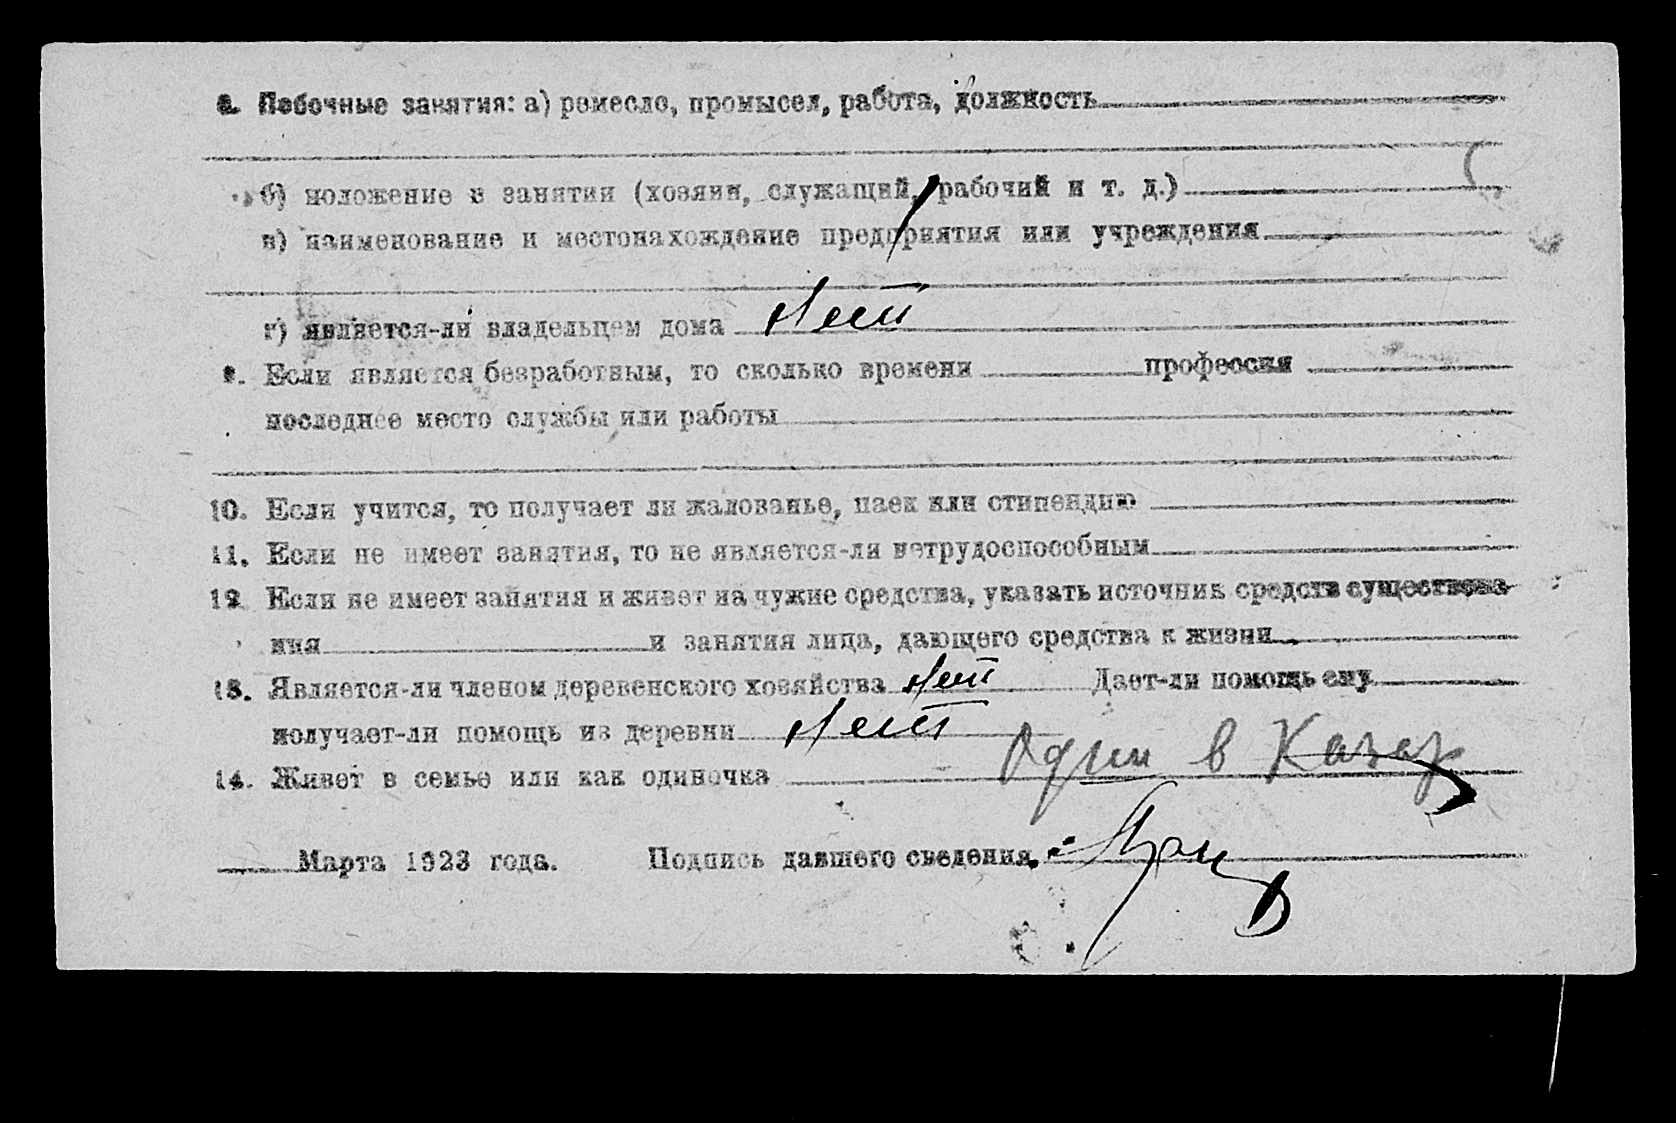 8. Побочные занятия: а) ремесло, промысел, работа, должность
б) положение в занятии (хозяин, служащий, рабочий и т. д.)
в) наименование и местонахождение предприятия или учреждения
г) является-ли владельцем дома Нет
9. Если является безработным, то сколько времени профессия
последнее место службы или работы
10. Если учится, то получает ли жалованье, паек или стипендию
11. Если не имеет занятия, то не является-ли нетрудоспособным
12 Если не имеет занятия и живет на чужие средства, указать источник средств существова-
ния и занятия лица, дающего средства к жизни
13. Является-ли членом деревенского хозяйства Нет Дает-ли помощь ему
получает-ли помощь из деревни Нет
14. Живет в семье или как одиночка Один в
Марта 1923 года. Подпись давшего сведения